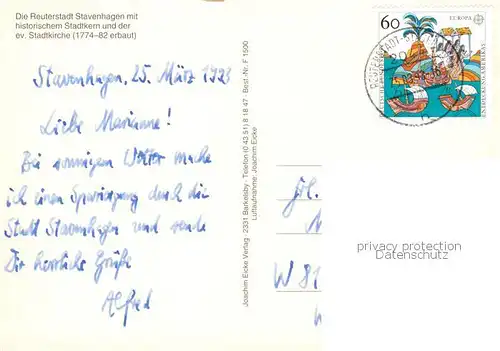 Die Reuterstadt Stavenhagen mit
historischem Stadtkern und der
ev. Stadtkirche (1774–82 erbaut)
60
EUROPA
Stavenhagen, 25. März 1993
Liebe Marianne!
Bei sonnigem Wetter mache
ich einen Spaziergang durch die
Stadt Stavenhagen und sende
Dir herzliche Grüße
Alfred
Joachim Eicke Verlag · 2331 Barkelsby · Telefon (0 43 51) 8 18 47 · Best.-Nr. F 1500
Luftaufnahme: Joachim Eicke
W 81
privacy protection
Datenschutz